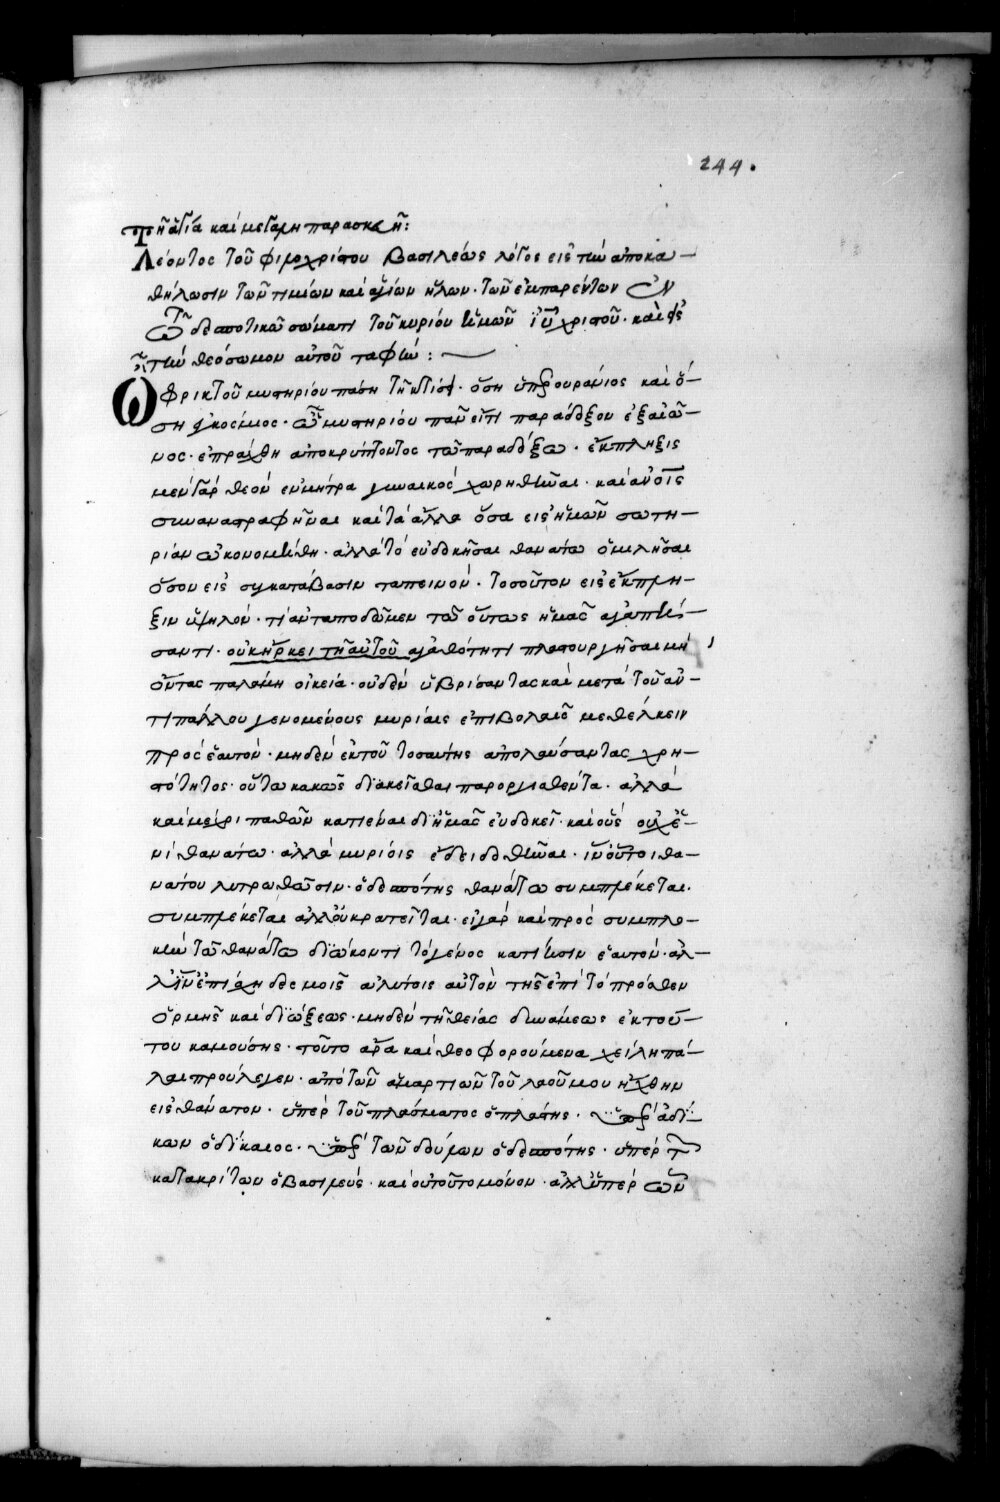 244.
Τῆ ἁγία καὶ μεγάλη παρασκευῆ:
Λέοντος τοῦ φιλοχρίστου βασιλέως λόγος εἰς τὴν ἀποκα–
θήλωσιν τῶν τιμίων καὶ ἁγίων ἥλων· τῶν ἐμπαρέντων ἐν
τῶ δεσποτικῶ σώματι τοῦ κυρίου ἡμῶν ἰῦ χριστοῦ· καὶ εἰς
τὴν θεόσωμον αὐτοῦ ταφὴν :
Ὢ φρικτοῦ μυστηρίου πάση τῆ κτίσει· ὅση ὑπερουράνιος καὶ ὅ–
ση ἐγκόσμιος· ὢ μυστηρίου παντὸς παράδοξον ἐξ αἰῶ–
νος· ἐπράχθη ἀποκρύπτοντος τῶ παραδόξω· ἔκπληξις
μὲν γὰρ θεὸν ἐν μήτρα γυναικὸς χωρηθῆναι· καὶ ἀνοις
συναναστραφῆναι καὶ τὰ ἄλλα ὅσα εἰς ἡμῶν σωτη–
ρίαν ὠκονομήθη· ἀλλὰ τὸ εὐδοκῆσαι θανάτω ὁμιλῆσαι
ὅσον εἰς συγκατάβασιν ταπεινὸν· τοσοῦτον εἰς ἔκπλη–
ξιν ὑψηλόν· τί ἀνταποδῶμεν τῶ οὕτως ἡμᾶς ἀγαπή–
σαντι· οὐκ ἤρκει τῆ αὐτοῦ ἀγαθότητι πλαστουργῆσαι μὴ
ὄντας παλάμη οἰκεία· οὐδὲν ὑβρίσαντας καὶ μετὰ τοῦ ἀν–
τιπάλου γενομένους μυρίαις ἐπιβολαῖς μεθέλκειν
πρὸς ἑαυτόν· μηδὲν ἐκ τοῦ τοσαύτης ἀπολαύσαντας χρη–
στότητος· οὕτω κακῶς διακεῖσθαι παροργισθέντα· ἀλλὰ
καὶ μέχρι παθῶν κατιέναι δι ἡμᾶς εὐδοκεῖ· καὶ οὓς οὐχ ἑ–
νὶ θανάτω· ἀλλὰ μυρίοις ἔδει δοθῆναι· ἵν οὗτοι θα–
νάτου λυτρωθῶσιν· ὁ δεσπότης θανάτω συμπλέκεται·
συμπλέκεται ἀλλ οὐ κρατεῖται· εἰ γὰρ καὶ πρὸς συμπλο–
κὴν τῶ θανάτω διώκοντι τὸ γένος κατῆσιν ἑαυτόν· ἀλ–
λ ἵν ἐπισχῆ δεσμοῖς ἀλύτοις αὐτὸν τῆς ἐπὶ τὸ πρόσθεν
ὁρμῆς καὶ διώξεως· μηδὲν τῆ θείας δυνάμεως ἐκ τού–
του καμούσης· τοῦτο ἄρα καὶ θεοφορούμενα χείλη πά–
λαι προύλεγεν· ἀπὸ τῶν ἁμαρτιῶν τοῦ λαοῦ μου ἤχθην
εἰς θάνατον· ὑπὲρ τοῦ πλάσματος ὁ πλάστης· ὑπὲρ ἀδί–
κων ὁ δίκαιος· ὑπὲρ τῶν δούλων ὁ δεσπότης· ὑπὲρ τῶν
κατακρίτων ὁ βασιλεύς· καὶ οὐ τοῦτο μόνον· ἀλλ ὑπὲρ ὧν